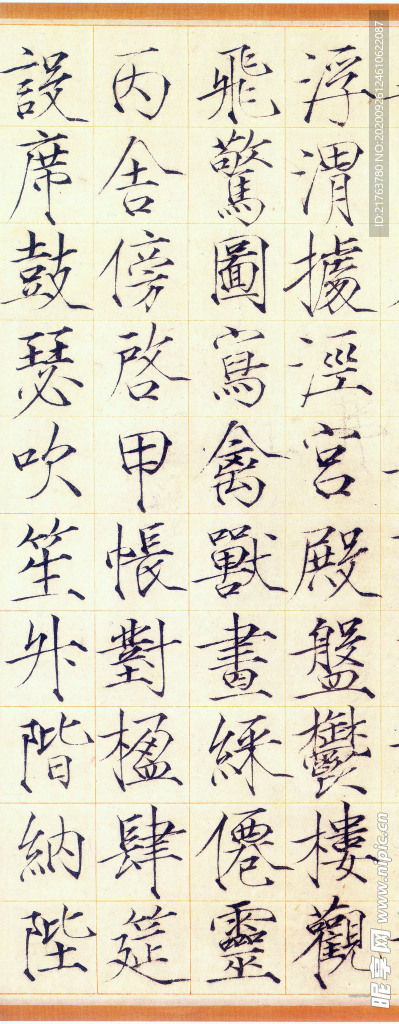 浮渭據涇宮殿盤鬱樓觀
飛驚圖寫禽獸畫綵僊靈
丙舍傍啓甲帳對楹肆筵
設席鼓瑟吹笙升階納陛
ID:21763780 NO:20200926124610622087
昵享网 www.nipic.cn